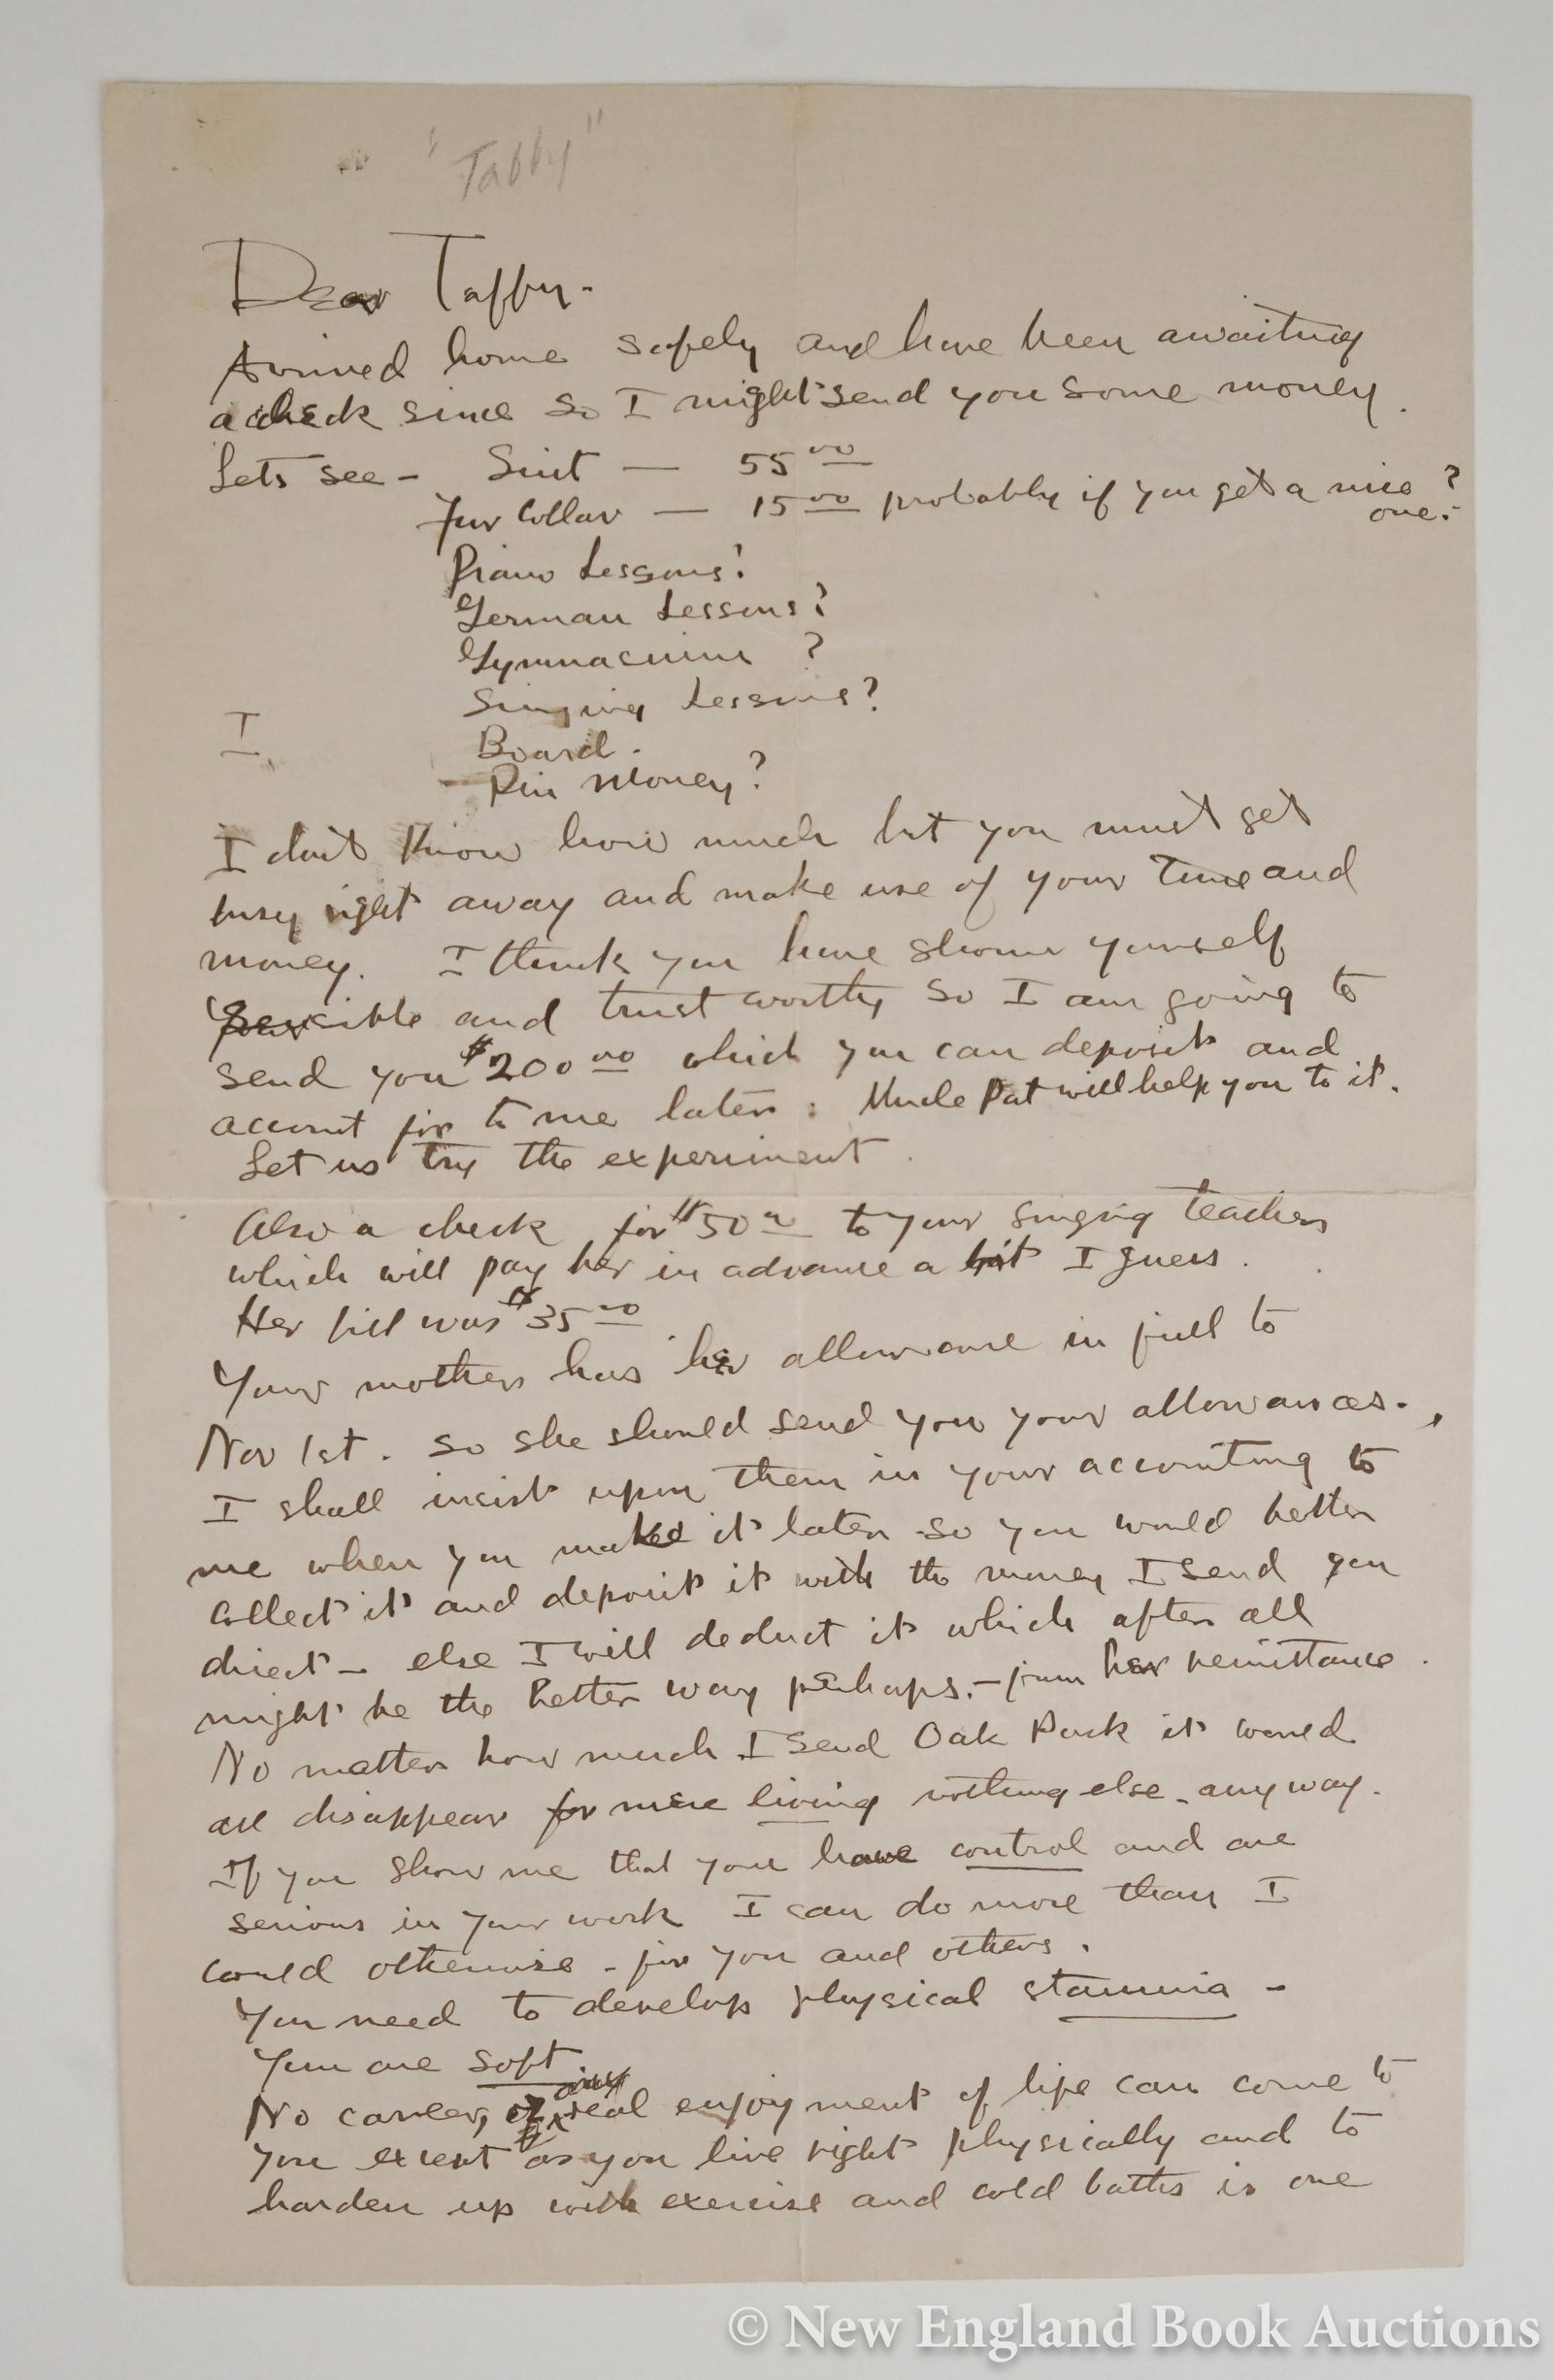 "Tabby"
Dear Taffy.
Arrived home safely and have been awaiting
a check since so I might send you some money.
Lets see - Suit — 55 00
Fur Collar — 15 00 probably if you get a nice one?
Piano Lessons?
German Lessons?
Gymnacium ?
Singing Lessons?
I
Board.
Pin Money?
I dont Know how much but you must get
busy right away and make use of your time and
money. I think you have shown yourself
sensible and trust worthy so I am going to
send you $200 00 which you can deposit and
account for to me later: Uncle Pat will help you to it.
Let us try the experiment.
Also a check for $50 to your singing teacher
which will pay her in advance a bit I guess.
Her bill was $35 00
Your mother has her allowance in full to
Nov 1st. so she should send you your allowances.
I shall insist upon them in your accounting to
me when you make it later so you would better
collect it and deposit it with the money I send you
direct - else I will deduct it which after all
might be the better way perhaps. - from her remittance.
No matter how much I send Oak Park it would
all disappear for mere living nothing else - anyway.
If you show me that you have control and are
serious in your work I can do more than I
could otherwise - for you and others.
You need to develop physical stamina -
You are soft
No career, or any real enjoyment of life can come to
you except as you live right physically and to
harden up with exercise and cold baths is one
© New England Book Auctions